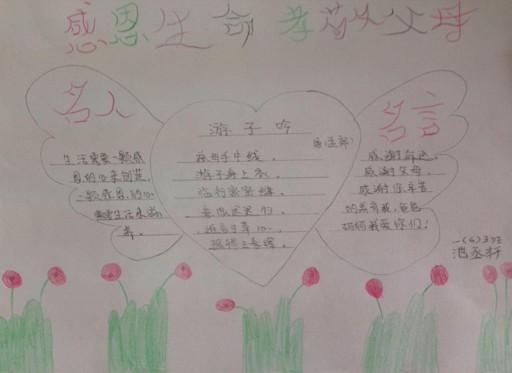 感恩生命 孝敬父母
名人
生活需要一颗感
恩的心来创造,
一颗感恩的心
需要生活来滋
养。
游子吟
孟郊
慈母手中线,
游子身上衣。
临行密密缝,
意恐迟迟归。
谁言寸草心,
报得三春晖。
名言
感谢命运,
感谢父母,
感谢你辛苦
的养育我,爸爸
妈妈我爱你们!
一(6)